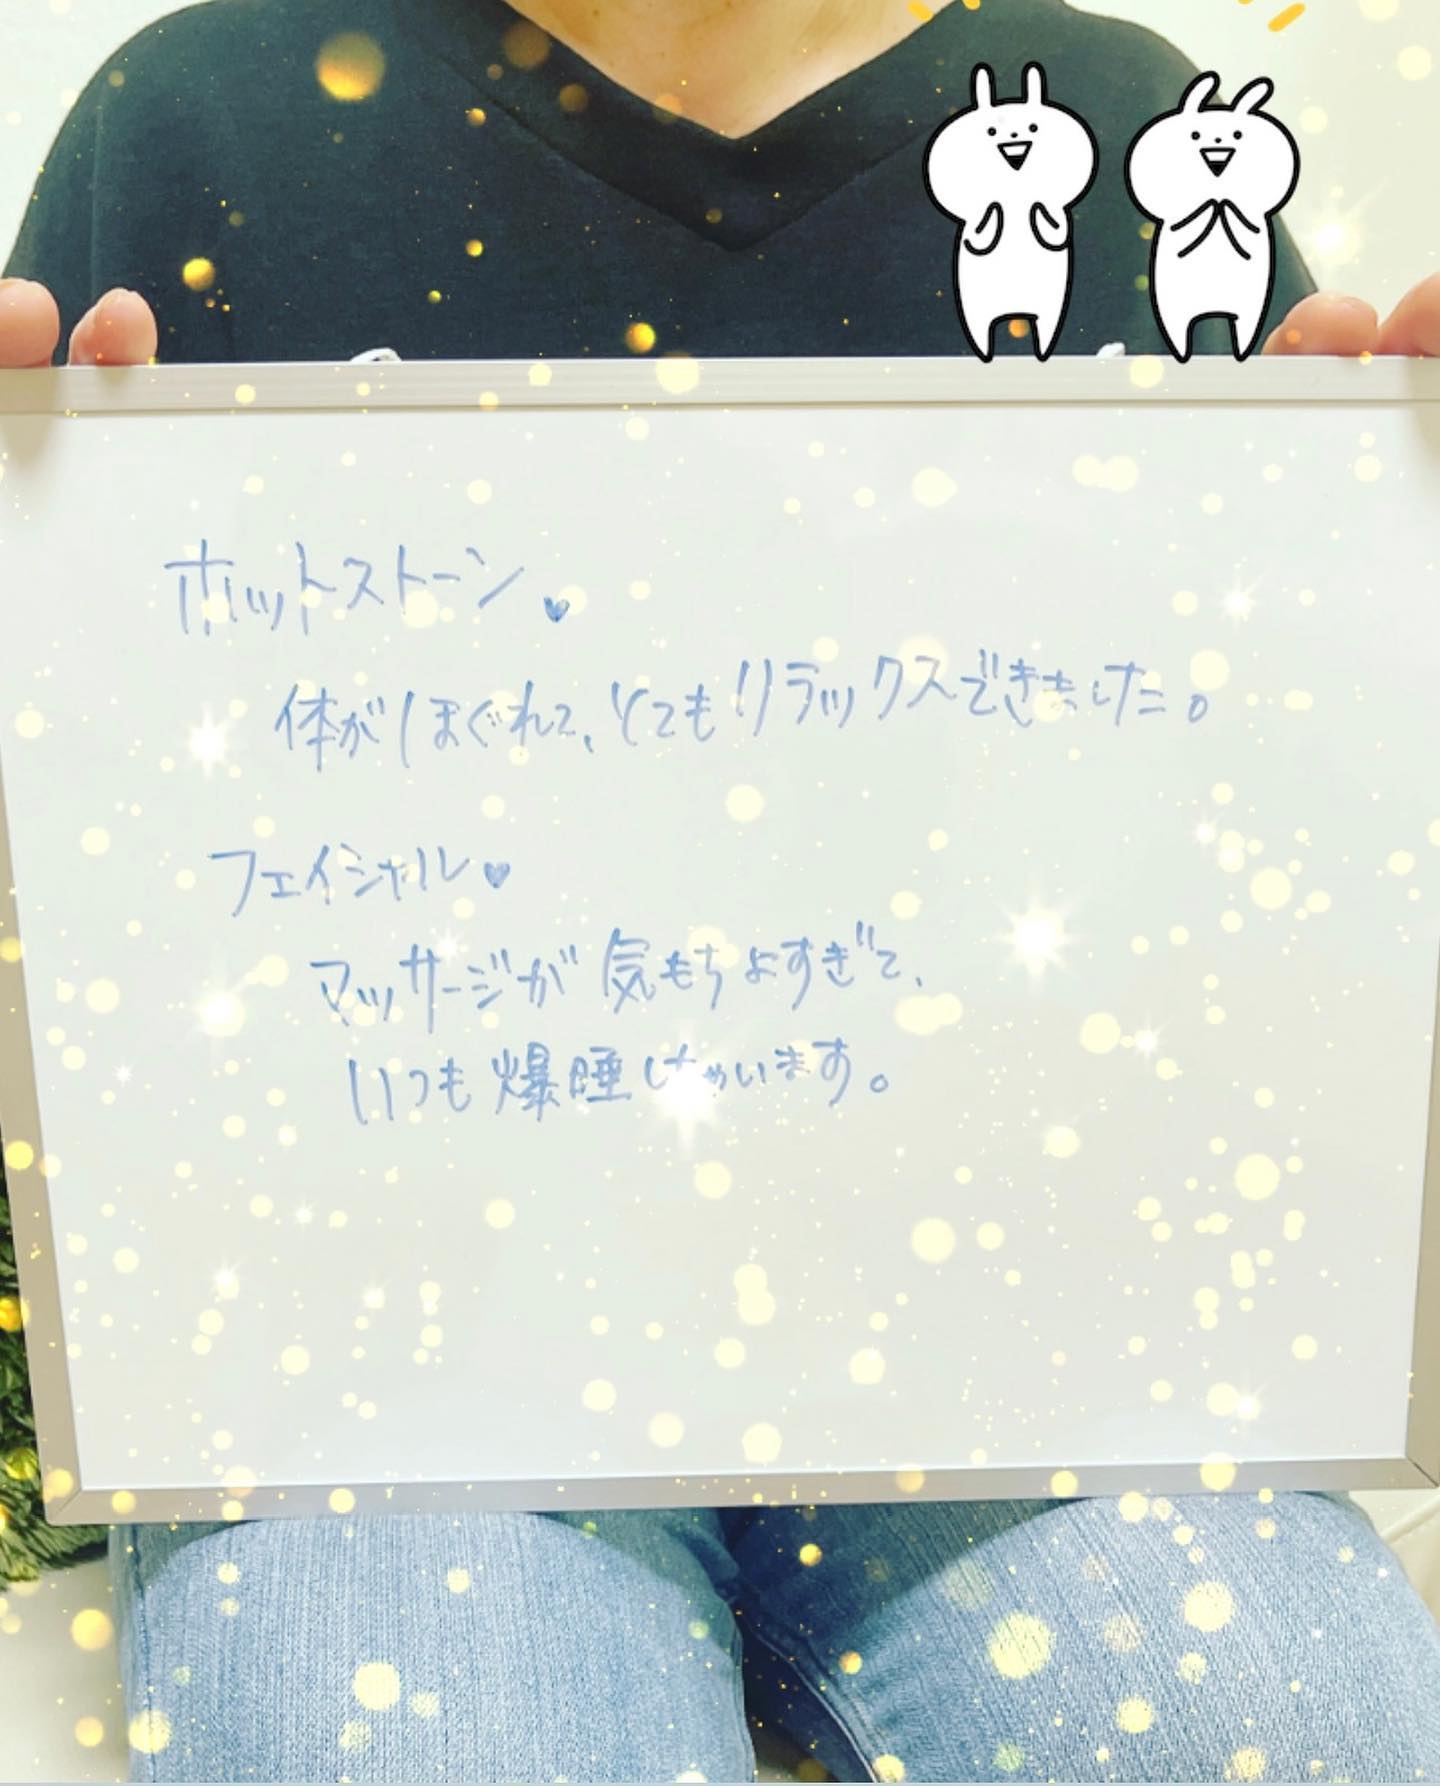 ホットストーン♥
体がほぐれて、とてもリラックスできました。
フェイシャル♥
マッサージが気もちよすぎて、
いつも爆睡しちゃいます。